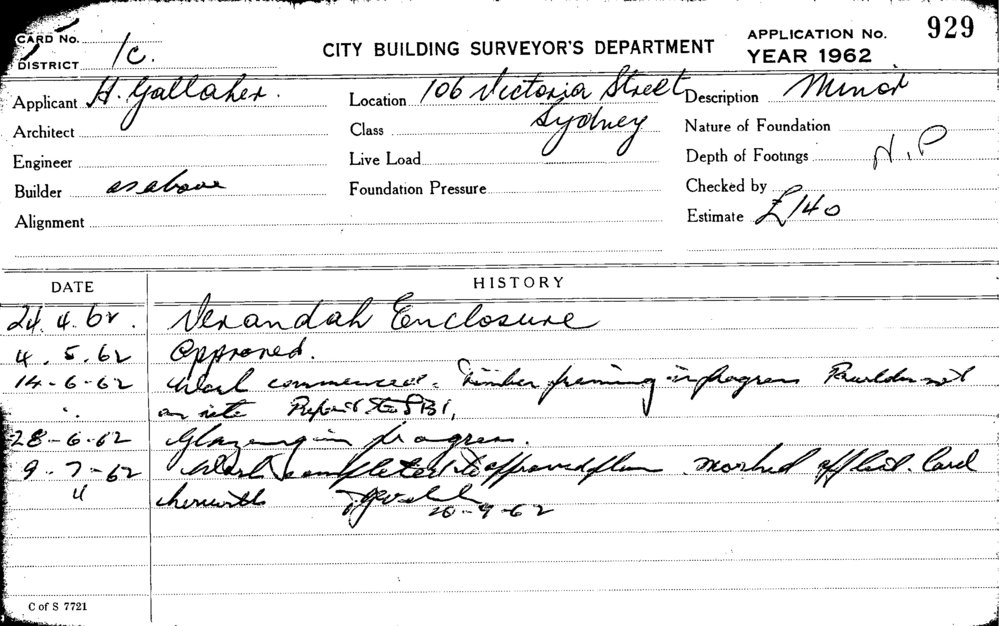 CARD No.
DISTRICT 1C.
CITY BUILDING SURVEYOR'S DEPARTMENT
APPLICATION No. 929
YEAR 1962
Applicant H. Gallaher.
Location 106 Victoria Street
Sydney
Description Minor
Architect
Class
Nature of Foundation
Engineer
Live Load
Depth of Footings N.P
Builder as above
Foundation Pressure
Checked by
Alignment
Estimate £140
DATE HISTORY
24. 4. 62. Verandah Enclosure
4. 5. 62 Approved.
14-6-62 Work commenced. Timber framing in progress Builder not
" on site Report to
28-6-62 Glazing in progress.
9-7-62 Work completed to approved plan marked off list. Card
" herewith
10-9-62
C of S 7721